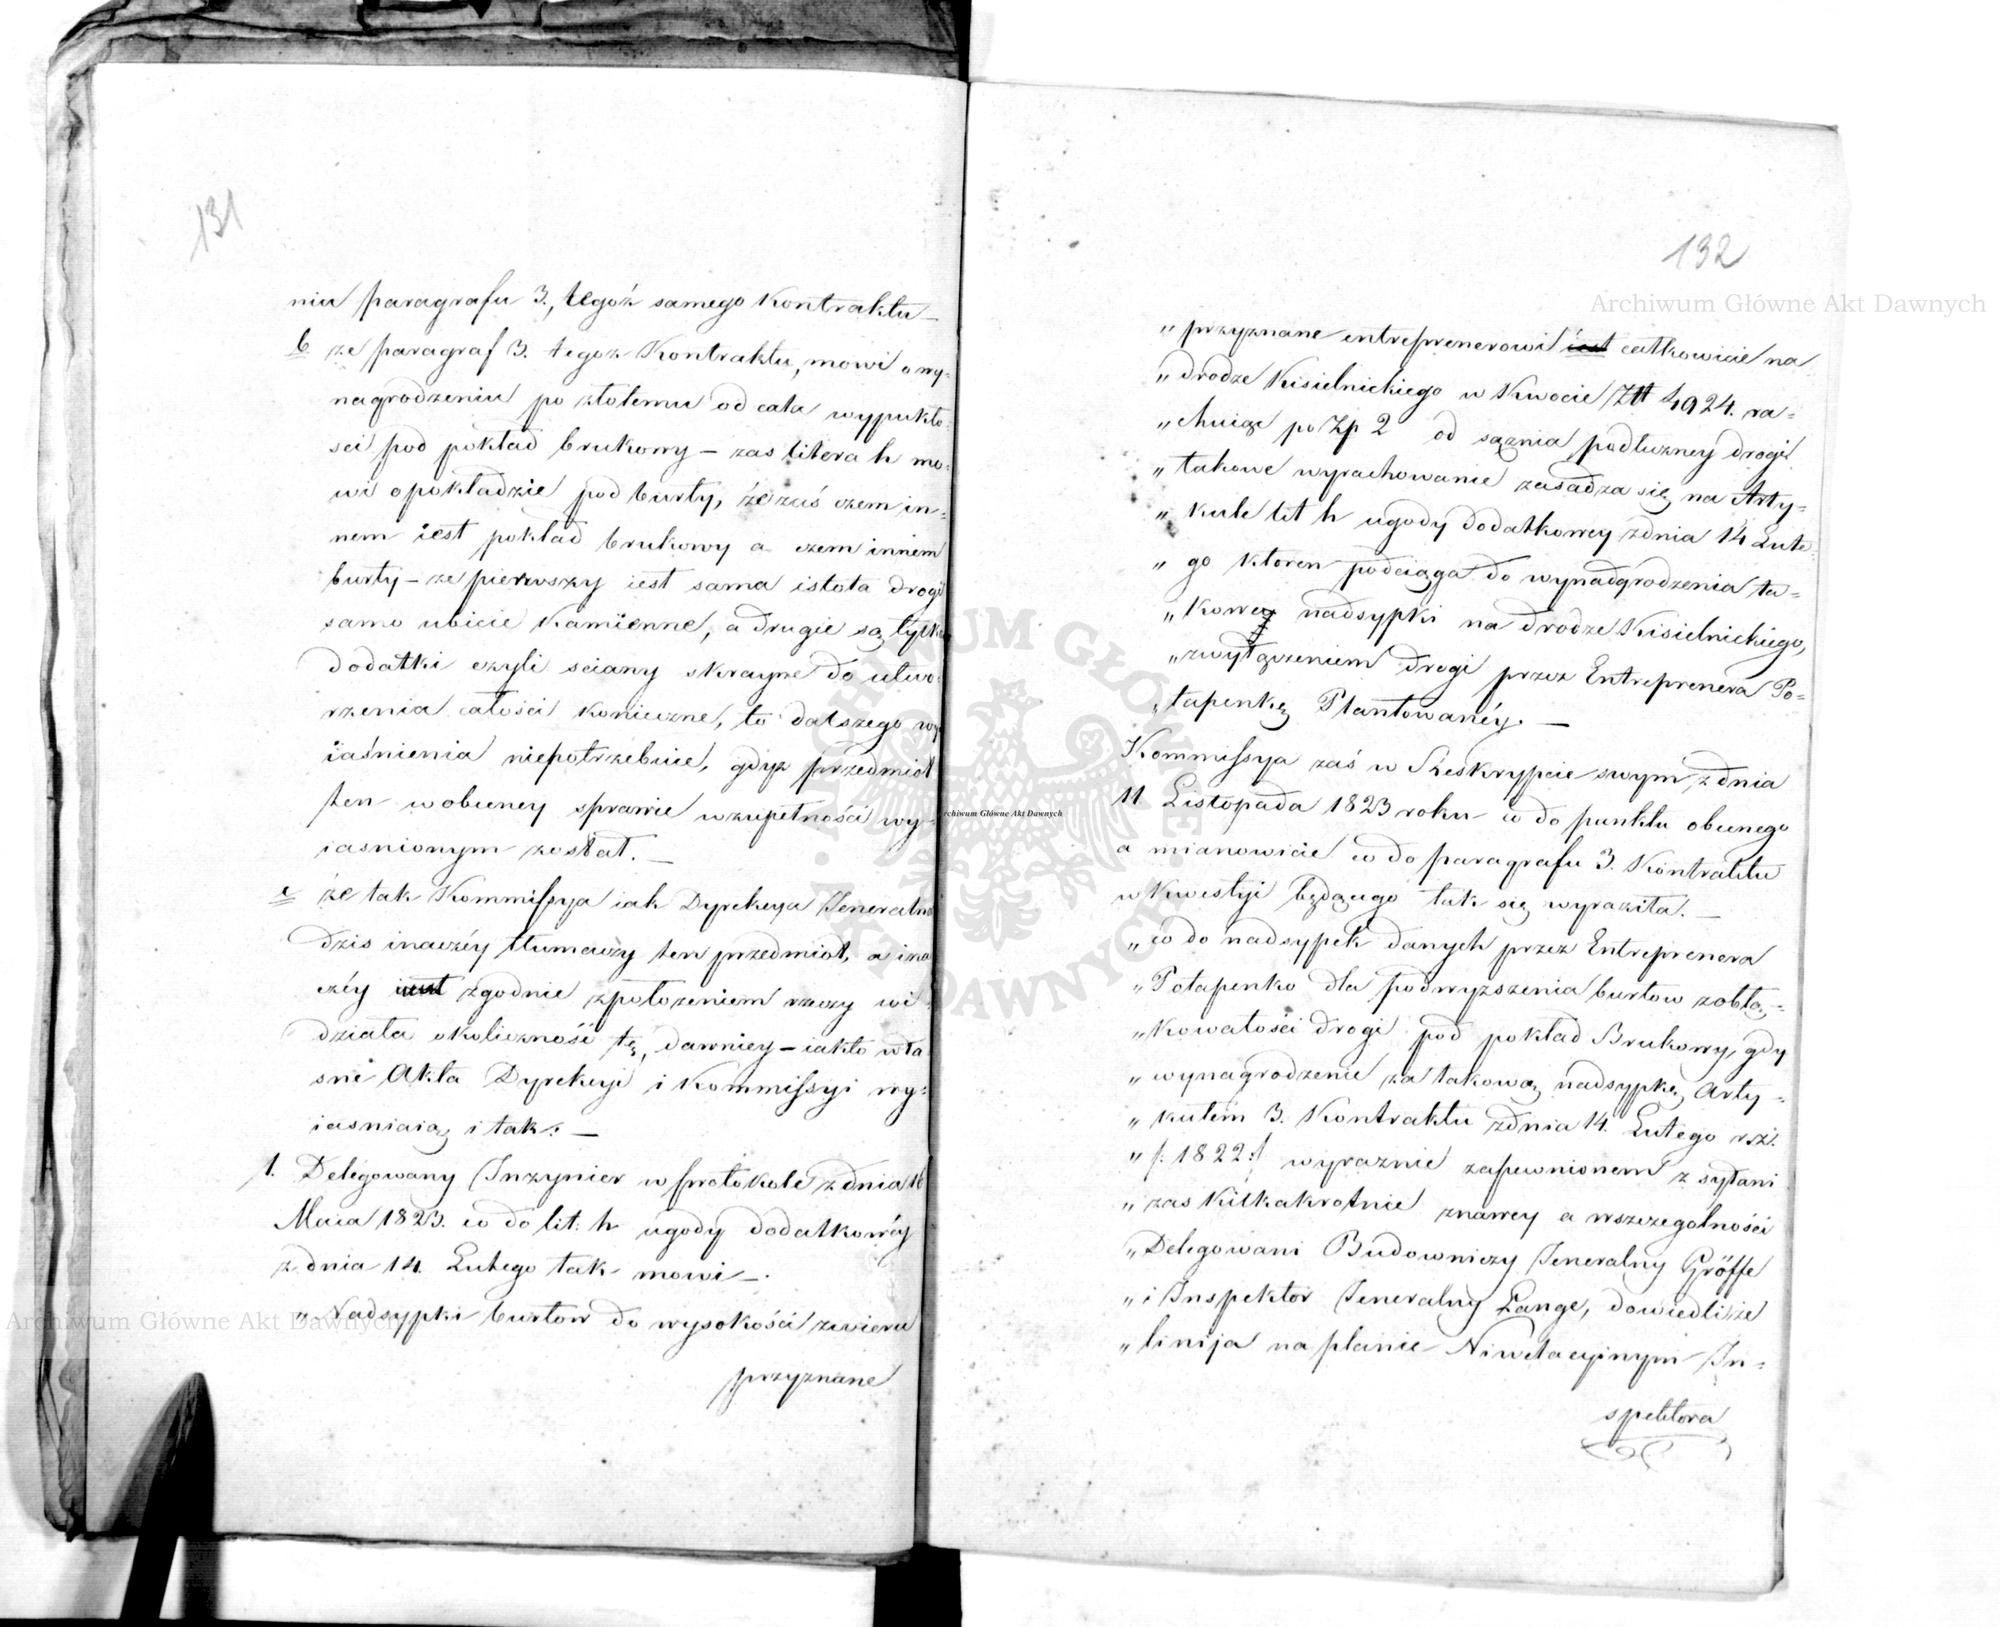 131
niu paragrafu 3., tegoż samego Kontraktu —
b. ze paragraf 3. tegoz Kontraktu, mowi o wy-
nagrodzeniu po złotemu od cala wypukło-
sci pod pokład brukowy — zas litera h mo-
wi o pokładzie pod burty, że zaś czem in-
nem iest pokład brukowy a czem innem
burty — ze pierwszy iest sama istota drogi
samo ubicie Kamienne, a drugie są tylko
dodatki czyli sciany skrayne do utwo-
rzenia całości konieczne, to dalszego wy-
iaśnienia niepotrzebuie, gdyz przedmiot
ten w obecney sprawie w zupełności wy-
iasnionym został. —
c że tak Kommissya iak Dyrekcya Jeneralna
dzis inaczéy tłumaczy ten przedmiot, a ina
czéy zgodnie z położeniem rzeczy wi-
działa okoliczność tę, dawniey — iak to wła
sne Akta Dyrekcyi i Kommissyi wy-
iasniaią i tak: —
1. Delegowany Inzynier w protokole z dnia 16
Maia 1823. co do lit: h ugody dodatkowéy
z dnia 14. Lutego tak mowi —.
„ Nadsypki burtow do wysokości zwieru
przyznane
132
„ przyznane entreprenerowi iest całkowicie na
„ drodze Kisielnickiego w Kwocie Złł 4924. ra-
„ chuiąc po Zp 2 od sąznia podłuzney drogi
„ takowe wyrachowanie zasadza się na Arty-
„ kule lit h ugody dodatkowey z dnia 14 Lute-
„ go ktoren podciąga do wynadgrodzenia ta-
„ kowey nadsypki na drodze Kisielnickiego,
„ z wyłączeniem drogi przez Entreprenera Po-
„ tapenkę Plantowanéy. —
Kommissya zaś w Reskrypcie swym, z dnia
11 Listopada 1823 roku co do punktu obecnego
a mianowicie co do paragrafu 3. Kontraktu
w Kwestyi będącego tak się wyraziła. —
„ co do nadsypek danych przez Entreprenera
„ Potapenko dla podwyzszenia burtow z obłą-
„ kowatości drogi pod pokład Brukowy, gdy
„ wynagrodzenie za takową nadsypkę Arty-
„ kułem 3. Kontraktu z dnia 14. Lutego
„ /: 1822 :/ wyraznie zapewnionem
„ zas Kilkakrotnie znawcy a w szczegolności
„ Delegowani Budowniczy Jeneralny Gröffe
„ i Inspektor Jeneralny Lange, dowiedli, że
„ linija na planie Niwelacyinym In-
spektora
Archiwum Główne Akt Dawnych
Archiwum Główne Akt Dawnych
Archiwum Główne Akt Dawnych
ARCHIWUM GŁÓWNE AKT DAWNYCH